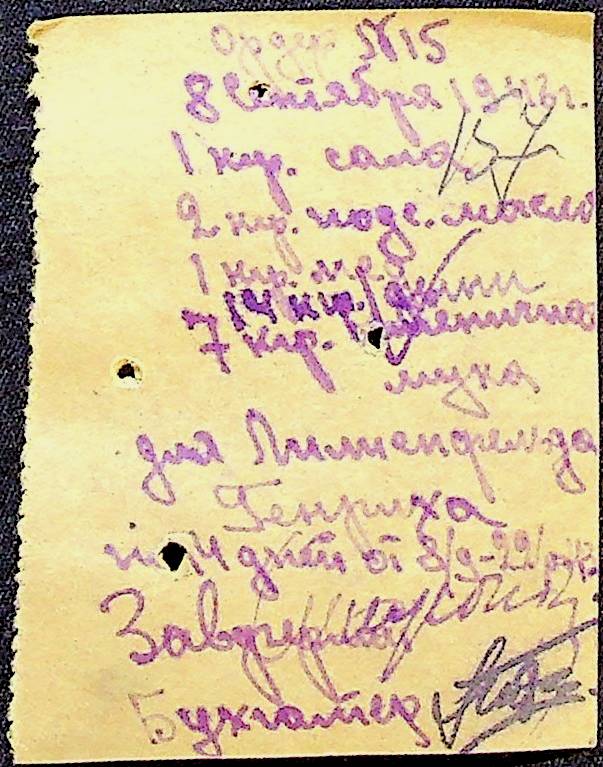 Ордер №15
8 Сентября 1943г.
1 кгр. сало
2 кгр. подс. масло
1 кгр.
14 кгр. дыни
7 кгр. пшеничная
мука
для Лилиенфельда
Генриха
на 14 дней от 8/9-22/
Зав.
Бухгалтер